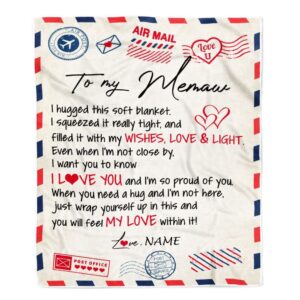 AIR MAIL
LOVE U
To my Memaw
I hugged this soft blanket.
I squeezed it really tight, and
filled it with my WISHES, LOVE & LIGHT.
Even when I'm not close by,
I want you to know
I L❤VE YOU and I'm so proud of you.
When you need a hug and I'm not here,
just wrap yourself up in this and
you will feel MY LOVE within it!
Love, NAME
POST OFFICE